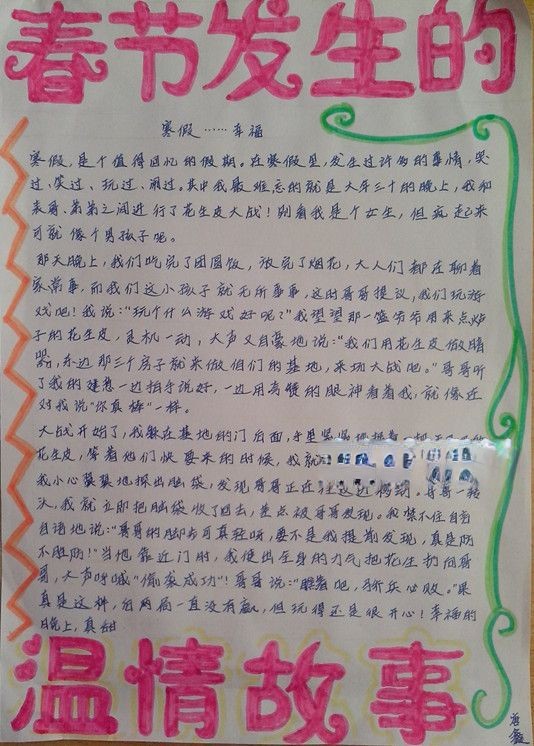 春节发生的
寒假……幸福
寒假,是个值得回忆的假期。在寒假里,发生过许多的事情,哭
过、笑过、玩过、闹过。其中我最难忘的就是大年三十的晚上,我和
表哥、弟弟之间进行了花生皮大战!别看我是个女生,但疯起来
可就像个男孩子呢。
那天晚上,我们吃完了团圆饭,放完了烟花,大人们都在聊着
家常事,而我们这小孩子就无所事事,这时哥哥提议,我们玩游
戏吧!我说:“玩个什么游戏好呢?”我望望那一篮爷爷用来点炉
子的花生皮,灵机一动,大声又自豪地说:“我们用花生皮做
器,东边那三个房子就来做咱们的基地,来场大战吧。”哥哥听
了我的建意一边拍手说好,一边用高赞的眼神看着我,就像在
对我说“你真棒”一样。
大战开始了,我躲在基地的门后面,手里紧紧地
花生皮,等着他们快要来的时候,我就
我小心翼翼地探出脑袋,发现哥哥正在往这边 哥哥一转
头,我就立即把脑袋收了回去,差点被哥哥发现。我禁不住自言
自语地说:“哥哥的脚步可真轻呀,要不是我提前发现,真是防
不胜防!”当他靠近门时,我使出全身的力气把花生扔向哥
哥,大声呼喊“偷袭成功”!哥哥说:“瞧着吧,骄兵必败。”果
真是这样,后两局一直没有赢,但玩得还是很开心!幸福的
晚上,真甜
温情故事